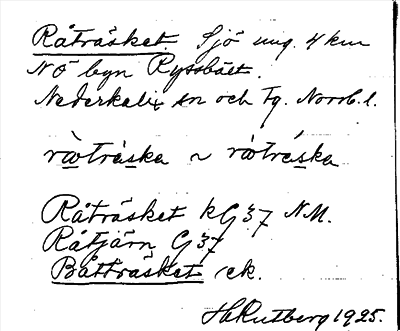 Råträsket. Sjö ung. 4 km
NÖ byn Ryssbält.
Nederkalix sn och tg. Norrb. l.
ràoträ̀ska ~ rå̀trä́ska
Råträsket kG37 N.M.
Råtjärn G37
Båtträsket ek.
H Rutberg 1925.